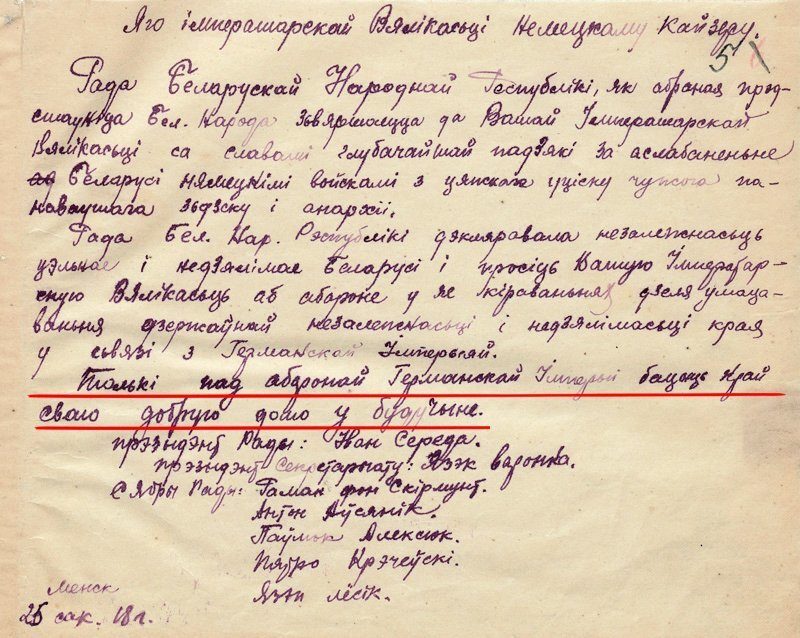 Яго імператарскай Вялікасьці Немецкаму Кайзеру.
51
Рада Беларускай Народнай Рэспублікі, як абраная прэд-
стаўніца Бел. Народа зьвяртаецца да Вашай Імператарскай
Вялікасьці са славамі глубачайшай падзякі за аслабаненьне
Беларусі нямецкімі войскамі з цяжкаго уціску чужого па-
наваушага зьдзеку і анархіі.
Рада Бел. Нар. Рэспублікі дэкляравала незалежнасьць
цэльнае і недзялімае Беларусі і просіць Вашую Імператар-
скую Вялікасьць аб абароне у яе кіраваньнях дзеля умаца-
ваньня дзержаўнай незалежнасьці і недзялімасьці края
у сьвязі з Германскай Імперыяй.
Толькі пад абаронай Германскай Імперыі бачыць Край
сваю добрую долю у будучыне.
прэзыдэнт Рады: Іван Середа.
прэзыдэнт Секретарыату: Язэп варонка.
сябры Рады: Раман фон Скірмунт.
Антон Аўсянік.
Паўлюк Алексюк.
Пятро Крэчеўскі.
Язэп лёсік.
Менск
25 сак. 18 г.